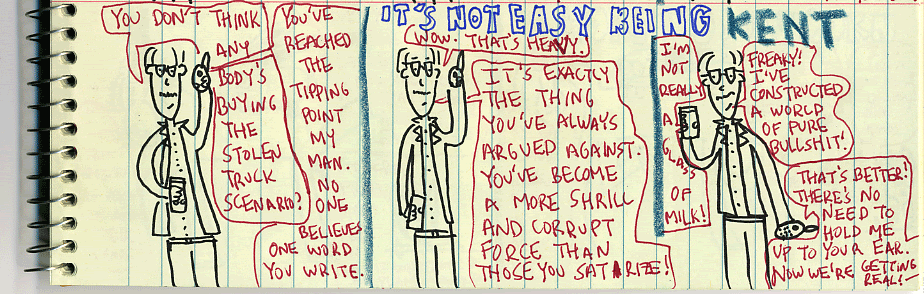 IT'S NOT EASY BEING KENT
YOU DON'T THINK
ANY
BODY'S
BUYING
THE
STOLEN
TRUCK
SCENARIO?
YOU'VE
REACHED
THE
TIPPING
POINT
MY
MAN.
NO
ONE
BELIEVES
ONE WORD
YOU WRITE.
WOW. THAT'S HEAVY.
IT'S EXACTLY
THE THING
YOU'VE ALWAYS
ARGUED AGAINST.
YOU'VE BECOME
A MORE SHRILL
AND CORRUPT
FORCE THAN
THOSE YOU SATARIZE!
I'M
NOT
REALLY
A
GLASS
OF
MILK!
FREAKY!
I'VE
CONSTRUCTED
A WORLD
OF PURE
BULLSHIT!
THAT'S BETTER!
THERE'S NO
NEED TO
HOLD ME
UP TO YOUR EAR.
NOW WE'RE GETTING
REAL!